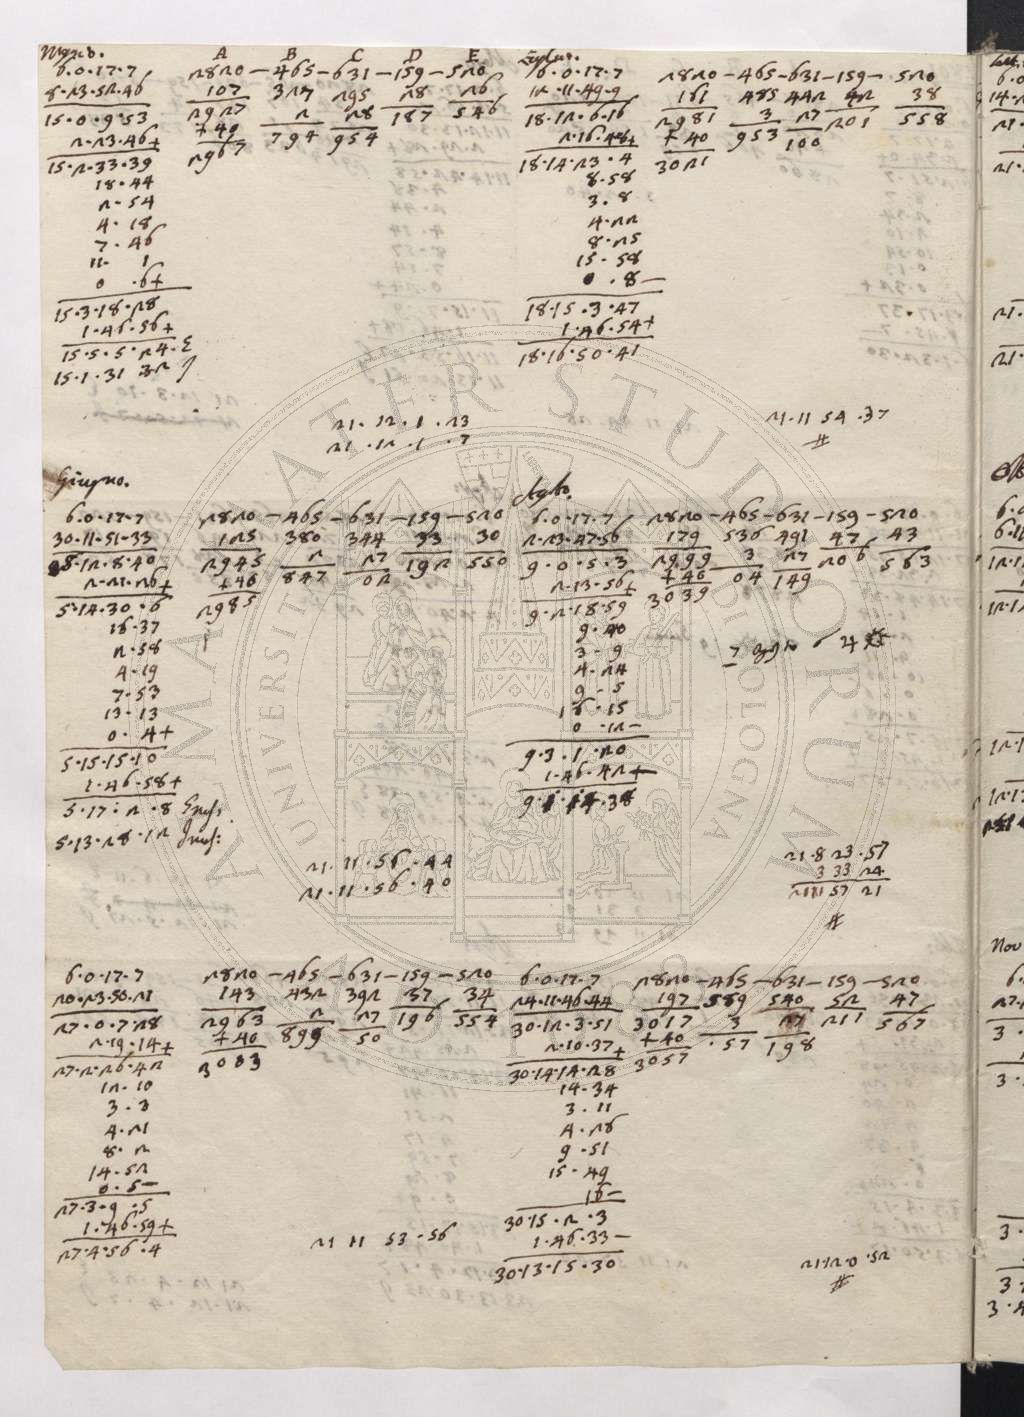 A B C D E
6.0.17.7 2820 – 465 – 631 – 159 – 520
8.23.52.46 107 327 295 28 26
15.0.9.53 2927 2 28 187 546
2.23.46+ +40 794 954
15.2.33.39 2967
18.44
2.54
4.18
7.46
11. 1
0 .6+
15.3.18.28
1.46.56+
15.5.5.24.
15.1.31 32
21.12.1.23
21.12.1.7
6.0.17.7 2820 – 465 – 631 – 159 – 520
12.11.49.9 161 485 442 42 38
18.12.6.16 2981 3 27 201 558
2.16.48+ +40 953 100
18.14.23.4 3021
8.58
3.8
4.22
8.25
15.58
0 .8–
18.15.3.47
1.46.54+
18.16.50.41
21.11 54.37
#
Giugno.
6.0.17.7 2820 – 465 – 631 – 159 – 520
30.11.51.33 125 380 344 33 30
5.12.8.40 2945 2 27 192 550
2.21.26+ +40 847 02
5.14.30.6 2985
16.37
2.58
4.19
7.53
13.13
0. 4+
5.15.15.10
1.46.58+
5.17.2.8
5.13.28.12
21.11.56.44
21.11.56.40
Agto.
6.0.17.7 2820 – 465 – 631 – 159 – 520
2.23.47.56 179 536 491 47 43
9.0.5.3 2999 3 27 206 563
2.13.56+ +40 04 149
9.2.18.59 3039
9.40
3.9
4.24
9.5
16.15
0.12–
9.3.1.20
1.46.42+
21.8 23.57
3 33 24
21 11 57 21
#
6.0.17.7 2820 – 465 – 631 – 159 – 520
20.23.50.21 143 432 392 37 34
27.0.7.28 2963 2 27 196 554
2.19.14+ +40 899 50
27.2.26.42 3003
12.10
3.3
4.21
8.2
14.52
0.5–
27.3.9.5
1.46.59+
27.4.56.4
21 11 53.56
6.0.17.7 2820 – 465 – 631 – 159 – 520
24.11.46.44 197 589 540 52 47
30.12.3.51 3017 3 27 211 567
2.10.37+ +40 .57 198
30.14.14.28 3057
14.34
3.11
4.26
9.51
15.49
16–
30.15.2.3
1.46.33–
30.13.15.30
21.12.0.52
#
ALMA MATER STUDIORUM
UNIVERSITÀ DI BOLOGNA